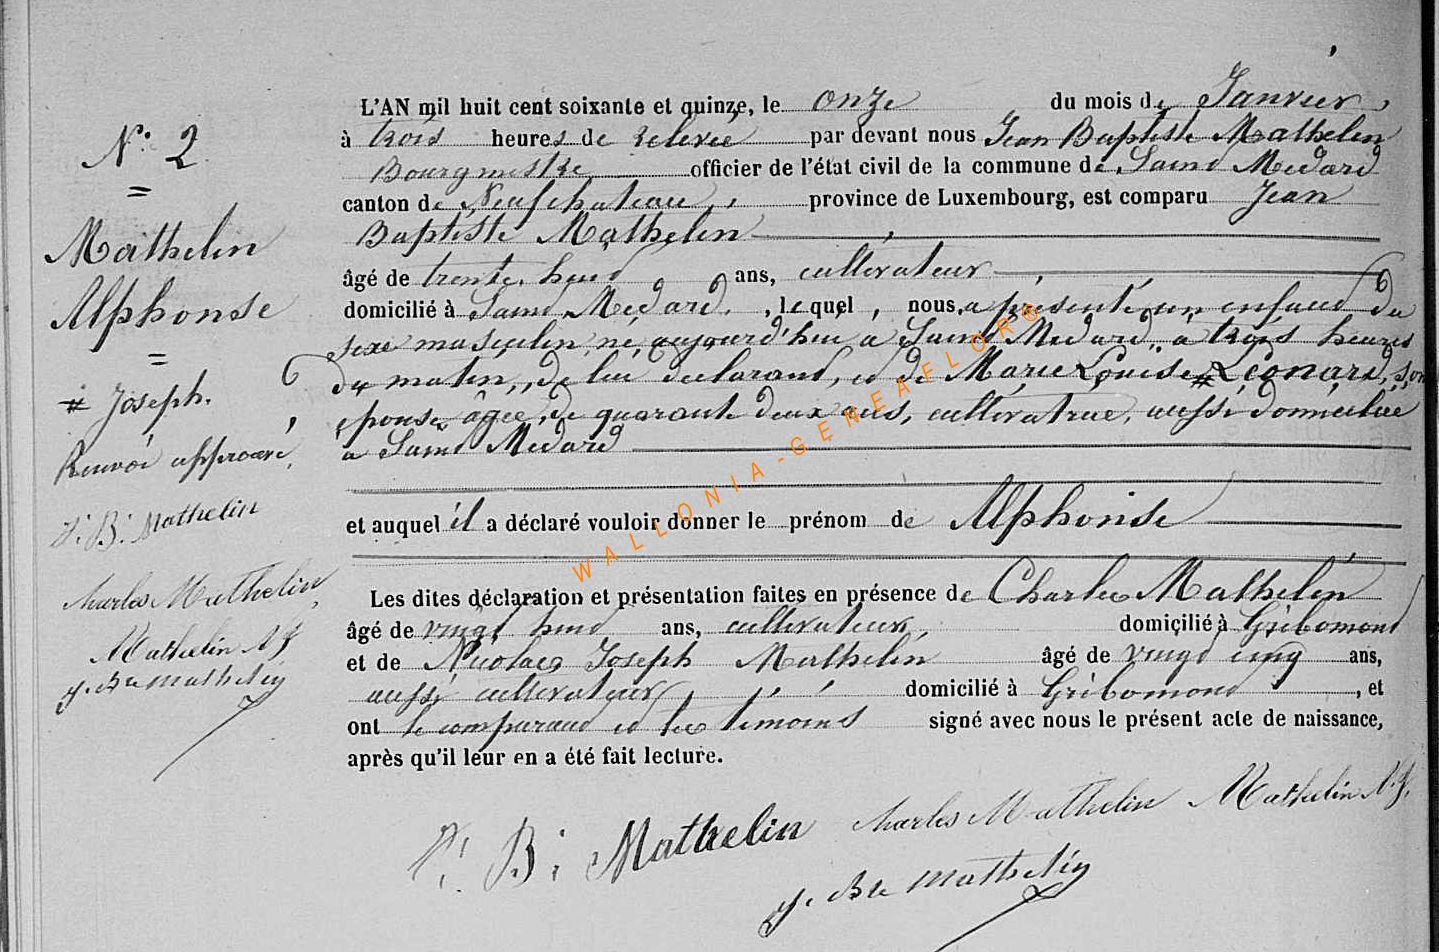 N° 2
=
Mathelin
Alphonse
=
# Joseph.
Renvoi approuvé,
J. B. Mathelin
Charles Mathelin
Mathelin N J
J. Bte Mathelin
L'AN mil huit cent soixante et quinze, le onze du mois de Janvier,
à trois heures de relevée par devant nous Jean Baptiste Mathelin
Bourgmestre officier de l'état civil de la commune de Saint Médard
canton de Neufchateau, province de Luxembourg, est comparu Jean
Baptiste Mathelin
âgé de trente huit ans, cultivateur
domicilié à Saint Médard, lequel, nous a présenté un enfant du
sexe masculin, né aujourd'hui à Saint Médard, à trois heures
du matin, de lui déclarant, et de Marie Louise # Léonard, son
épouse, âgée de quarante deux ans, cultivatrice, aussi domiciliée
à Saint Médard
et auquel il a déclaré vouloir donner le prénom de Alphonse
Les dites déclaration et présentation faites en présence de Charles Mathelin
âgé de vingt huit ans, cultivateur, domicilié à Gribomont
et de Nicolas Joseph Mathelin âgé de vingt cinq ans,
aussi cultivateur, domicilié à Gribomont, et
ont le comparant et les témoins signé avec nous le présent acte de naissance,
après qu'il leur en a été fait lecture.
J. B. Mathelin Charles Mathelin Mathelin N. J.
J. Bte Mathelin
WALLONIA-GENEAFLOR®